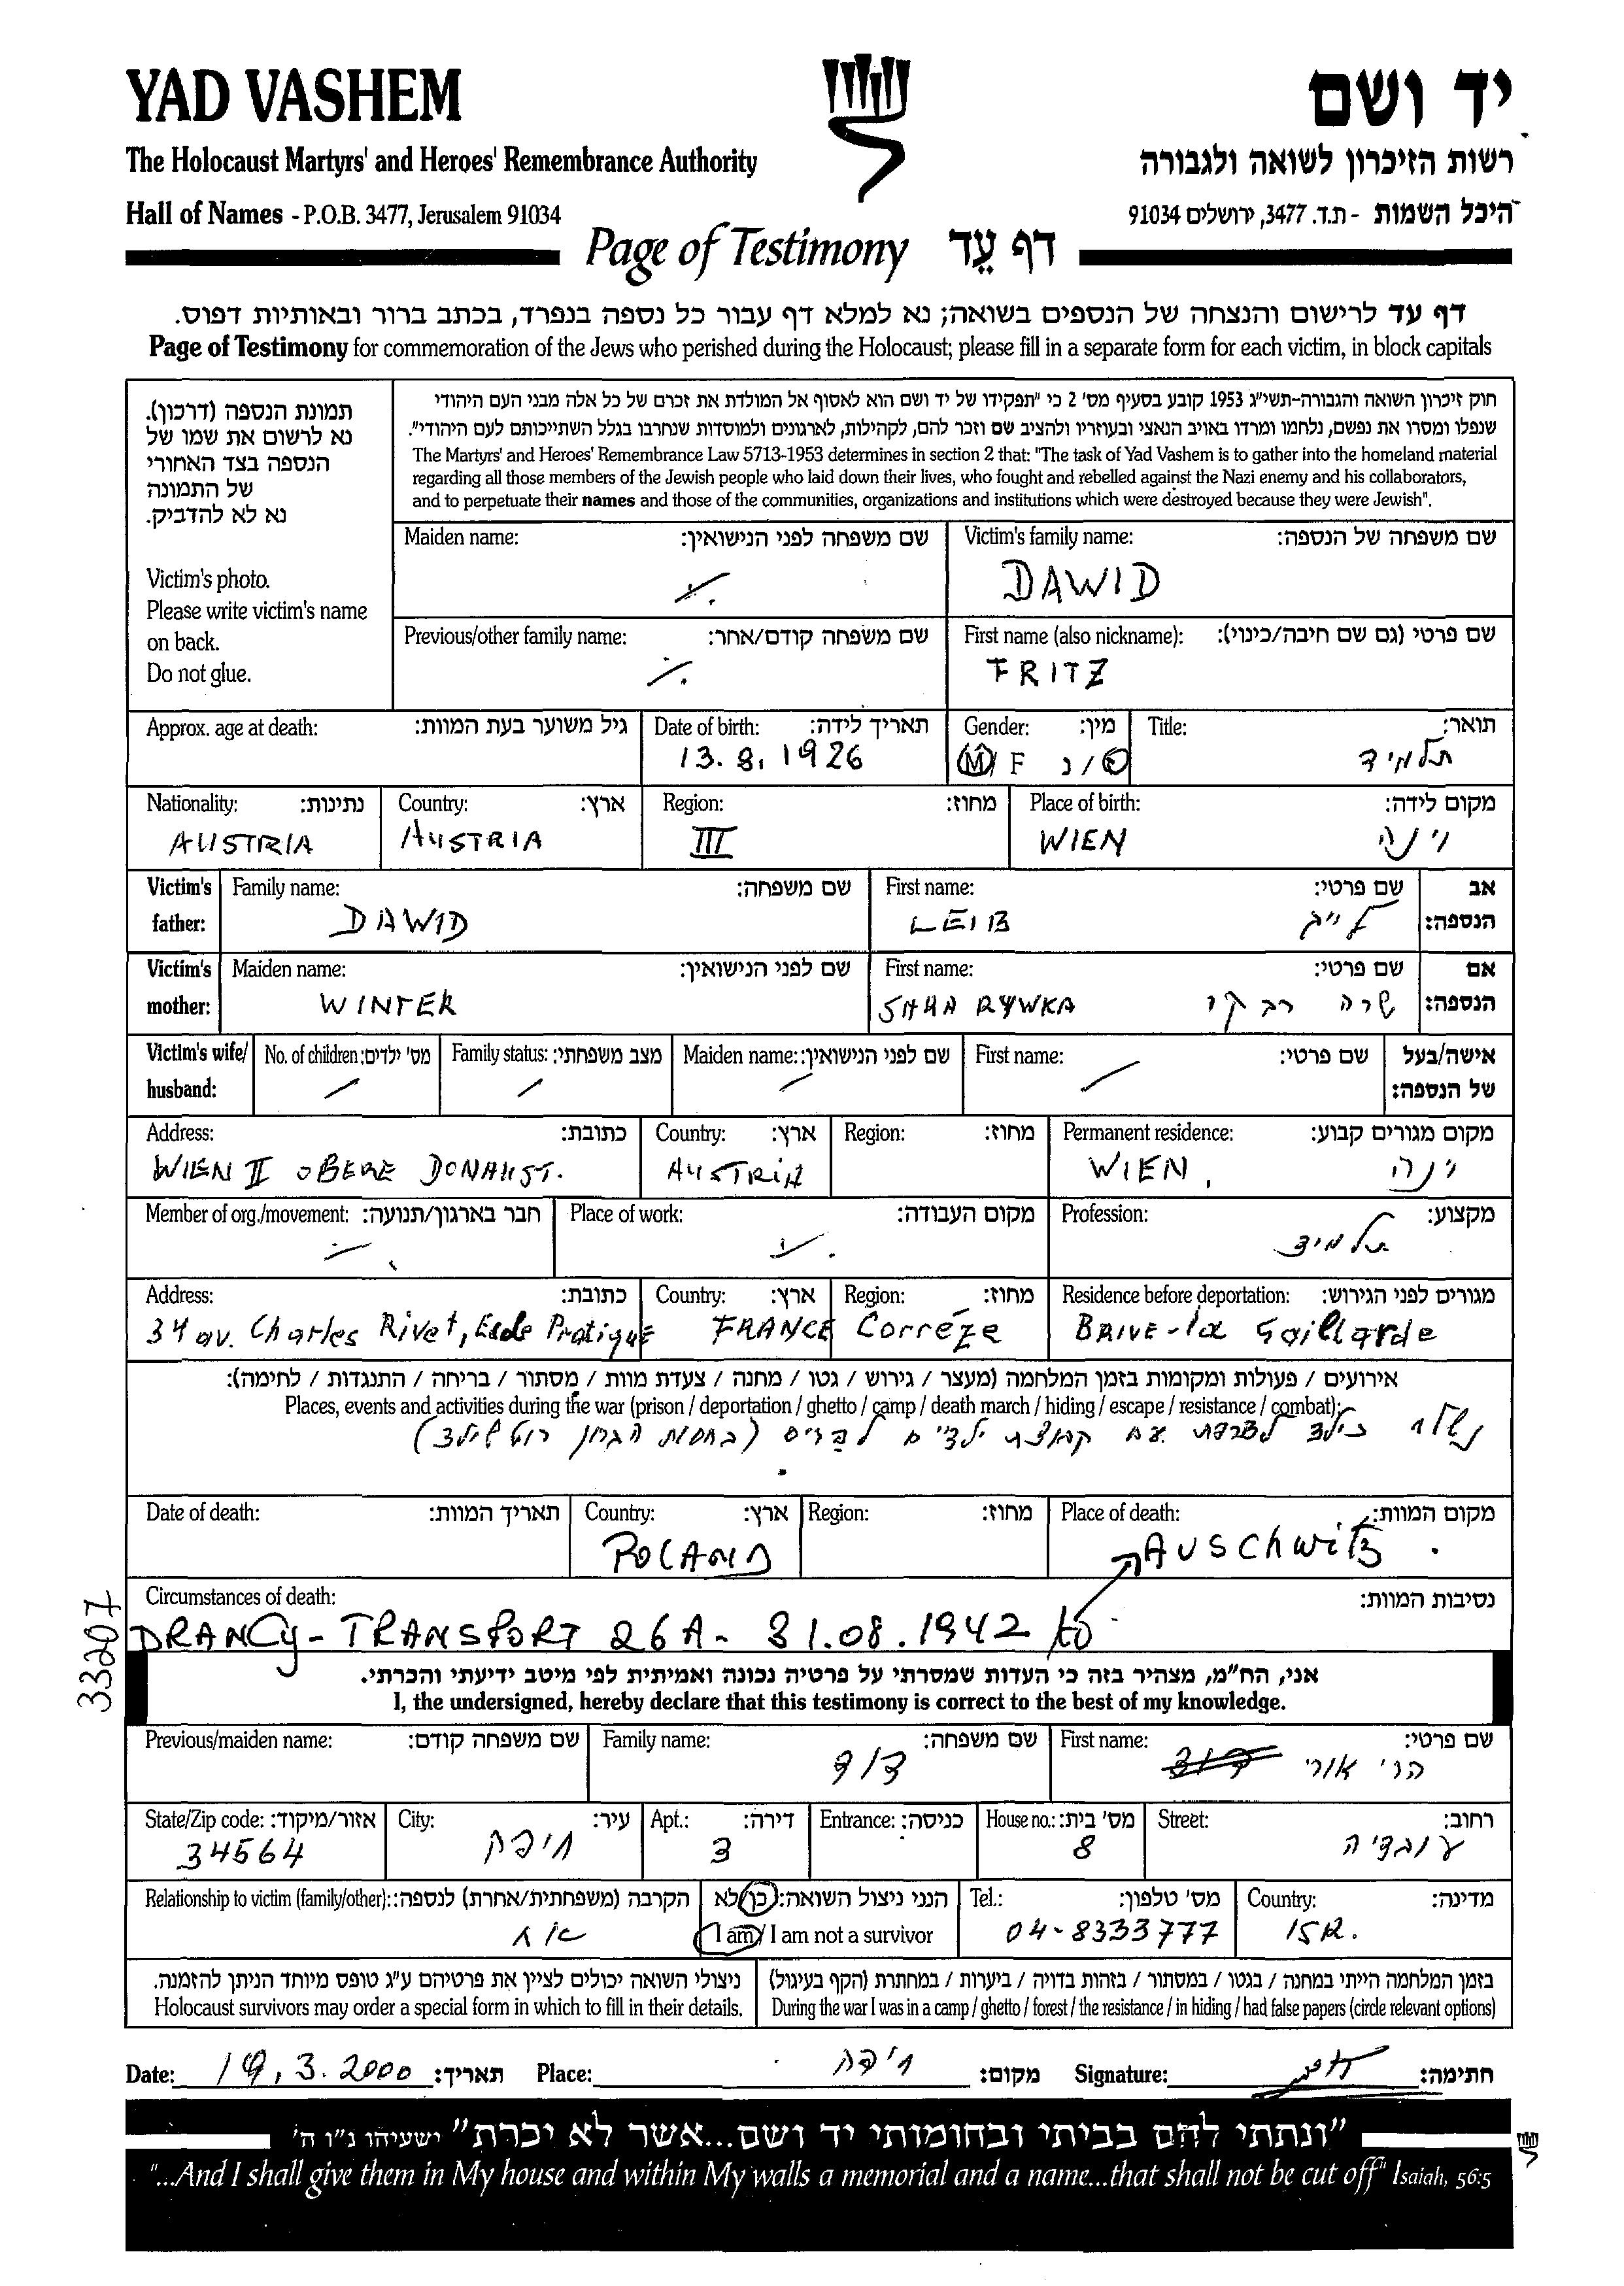 YAD VASHEM
יד ושם
The Holocaust Martyrs' and Heroes' Remembrance Authority
רשות הזיכרון לשואה ולגבורה
Hall of Names - P.O.B. 3477, Jerusalem 91034
היכל השמות - ת.ד. 3477, ירושלים 91034
Page of Testimony דף עֵד
דף עד לרישום והנצחה של הנספים בשואה; נא למלא דף עבור כל נספה בנפרד, בכתב ברור ובאותיות דפוס.
Page of Testimony for commemoration of the Jews who perished during the Holocaust; please fill in a separate form for each victim, in block capitals
תמונת הנספה (דרכון).
נא לרשום את שמו של
הנספה בצד האחורי
של התמונה
נא לא להדביק.
Victim's photo.
Please write victim's name
on back.
Do not glue.
חוק זיכרון השואה והגבורה-תשי"ג 1953 קובע בסעיף מס' 2 כי "תפקידו של יד ושם הוא לאסוף אל המולדת את זכרם של כל אלה מבני העם היהודי
שנפלו ומסרו את נפשם, נלחמו ומרדו באויב הנאצי ובעוזריו ולהציב שם וזכר להם, לקהילות, לארגונים ולמוסדות שנחרבו בגלל השתייכותם לעם היהודי".
The Martyrs' and Heroes' Remembrance Law 5713-1953 determines in section 2 that: "The task of Yad Vashem is to gather into the homeland material
regarding all those members of the Jewish people who laid down their lives, who fought and rebelled against the Nazi enemy and his collaborators,
and to perpetuate their names and those of the communities, organizations and institutions which were destroyed because they were Jewish".
Maiden name: שם משפחה לפני הנישואין:
Victim's family name: שם משפחה של הנספה:
DAWID
Previous/other family name: שם משפחה קודם/אחר:
First name (also nickname): שם פרטי (גם שם חיבה/כינוי):
FRITZ
Approx. age at death: גיל משוער בעת המוות: Date of birth: תאריך לידה: Gender: מין: Title: תואר:
13.8.1926 M/ F ז/נ תלמיד
Nationality: נתינות: Country: ארץ: Region: מחוז: Place of birth: מקום לידה:
AUSTRIA AUSTRIA III WIEN וינה
Victim's father: Family name: שם משפחה: First name: שם פרטי: אב הנספה:
DAWID LEIB לייב
Victim's mother: Maiden name: שם לפני הנישואין: First name: שם פרטי: אם הנספה:
WINTER SARA RYWKA שרה רבקי
Victim's wife/ husband: No. of children: מס' ילדים: Family status: מצב משפחתי: Maiden name: שם לפני הנישואין: First name: שם פרטי: אישה/בעל של הנספה:
Address: כתובת: Country: ארץ: Region: מחוז: Permanent residence: מקום מגורים קבוע:
WIEN II OBERE DONAUST. AUSTRIA WIEN, וינה
Member of org./movement: חבר בארגון/תנועה: Place of work: מקום העבודה: Profession: מקצוע:
תלמיד
Address: כתובת: Country: ארץ: Region: מחוז: Residence before deportation: מגורים לפני הגירוש:
34 av. Charles Rivet, Ecole Pratique FRANCE Corrèze BRIVE-la Gaillarde
אירועים / פעולות ומקומות בזמן המלחמה (מעצר / גירוש / גטו / מחנה / צעדת מוות / מסתור / בריחה / התנגדות / לחימה):
Places, events and activities during the war (prison / deportation / ghetto / camp / death march / hiding / escape / resistance / combat):
נשלח כילד לצרפת עם קבוצת ילדים לפריס (בחסות הברון רוטשילד)
Date of death: תאריך המוות: Country: ארץ: Region: מחוז: Place of death: מקום המוות:
POLAND AUSCHWITZ
Circumstances of death: נסיבות המוות:
DRANCY - TRANSPORT 26A - 31.08.1942 to
33207
אני, הח"מ, מצהיר בזה כי העדות שמסרתי על פרטיה נכונה ואמיתית לפי מיטב ידיעתי והכרתי.
I, the undersigned, hereby declare that this testimony is correct to the best of my knowledge.
Previous/maiden name: שם משפחה קודם: Family name: שם משפחה: First name: שם פרטי:
דוד הרי אורי
State/Zip code: אזור/מיקוד: City: עיר: Apt.: דירה: Entrance: כניסה: House no.: מס' בית: Street: רחוב:
34564 חיפה 3 8 עובדיה
Relationship to victim (family/other): הקרבה (משפחתית/אחרת) לנספה: הנני ניצול השואה: כן/לא Tel.: מס' טלפון: Country: מדינה:
אח I am/ I am not a survivor 04-8333777 ISR.
ניצולי השואה יכולים לציין את פרטיהם ע"ג טופס מיוחד הניתן להזמנה.
Holocaust survivors may order a special form in which to fill in their details.
בזמן המלחמה הייתי במחנה / בגטו / במסתור / בזהות בדויה / ביערות / במחתרת (הקף בעיגול)
During the war I was in a camp / ghetto / forest / the resistance / in hiding / had false papers (circle relevant options)
Date: 19.3.2000 תאריך: Place: חיפה מקום: Signature: חתימה:
"ונתתי להם בביתי ובחומותי יד ושם...אשר לא יכרת" ישעיהו נ"ו ה'
"...And I shall give them in My house and within My walls a memorial and a name...that shall not be cut off" Isaiah, 56:5